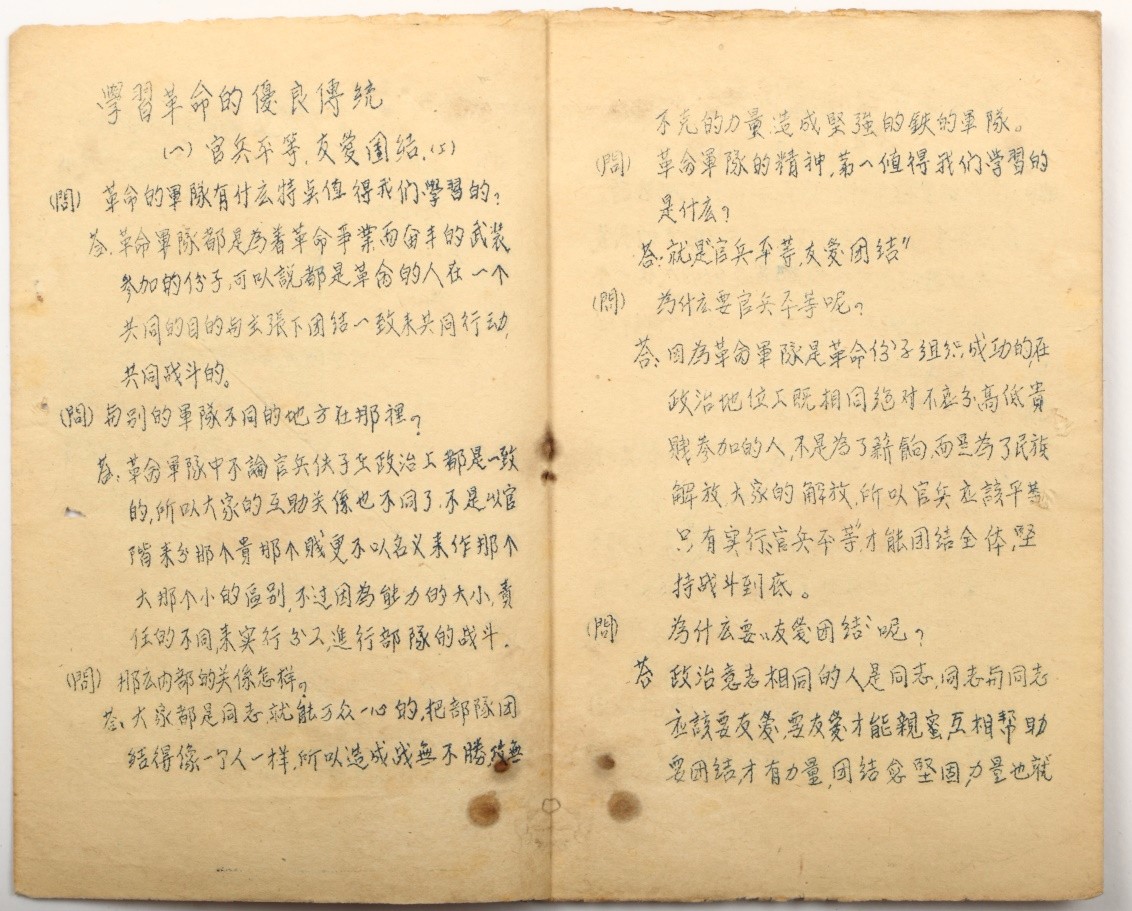 學習革命的優良傳統
(一)官兵平等,友愛團結,(上)
(問) 革命的軍隊有什么特点值得我们學習的?
荅:革命軍隊都是為着革命事業而奮斗的武装
參加的份子,可以説都是革命的人在一个
共同的目的与主張下团结一致来共同行动,
共同战斗的。
(問)与别的軍隊不同的地方在那裡?
荅:革命軍隊中不論官兵伕子在政治上都是一致
的,所以大家的互助关係也不同了,不是以官
階来分那个貴那个賤更不以名义来作那个
大那个小的區别,不过因為能力的大小,責
任的不同,来实行分工,進行部隊的战斗.
(問) 那么内部的关係怎样。
荅:大家都是同志,就能万众一心的,把部隊团
结得像一个人一样,所以造成战無不勝攻無
不克的力量,造成堅強的鉄的軍隊。
(問) 革命軍隊的精神,第一值得我们学習的
是什么?
荅:就是"官兵平等,友爱团结"
(問) 為什么要官兵平等呢?
荅:因為革命軍隊是革命份子组织成功的,在
政治地位上既相同绝对不应分高低貴
賤參加的人,不是為了薪餉,而是為了民族
解放大家的解放,所以官兵应該平等
只有实行"官兵平等"才能团结全体,堅
持战斗到底。
(問) 為什么要"友愛团结"呢?
荅 政治意志相同的人是同志,同志与同志
应該要友愛,要友愛才能親蜜互相帮助
要团结,才有力量,团结愈堅固,力量也就